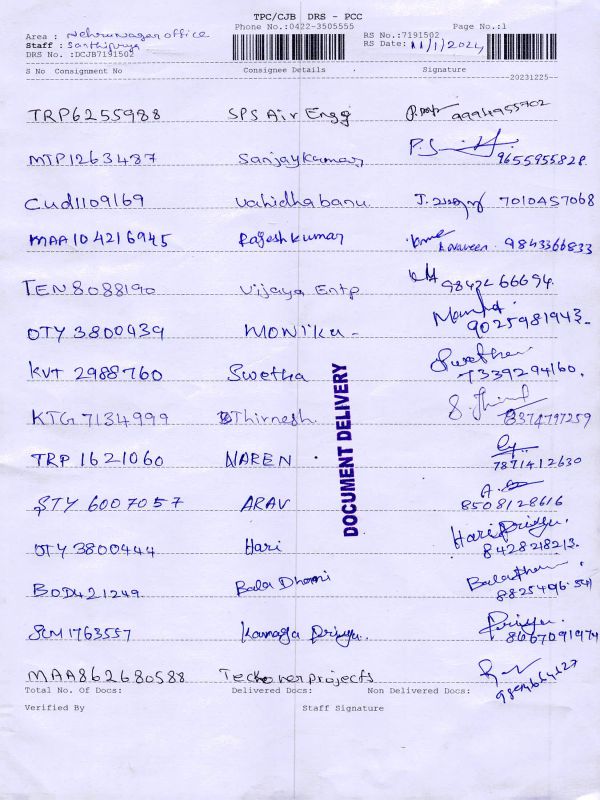 TPC/CJB DRS - PCC
Phone No.:0422-3505555 Page No.:1
Area : Nehrunagar office
Staff : Santhipriya
DRS No. :DCJB7191502
RS No.:7191502
RS Date: 11/1/2024
S No Consignment No Consignee Details Signature
20231225
TRP6255988 SPS Air Engg 9994955902
MTP1263487 Sanjaykumar 9655955828
CUD1109169 Vahidhabanu 7010457068
MAA104216945 Rajeshkumar 9843366833
TEN8088190 Vijaya Entp 9842266694
OTY 3800439 MONIKA - 9025981943
KVT 2988760 Swetha Swetha 7339294160
KTG 7134999 Thirnesh 8374797259
TRP 1621060 NAREN 7871412630
STY 6007057 ARAV 8508128616
OTY 3800444 Hari Haripriya 8428218213
BOD421249 Bala Dhoni
SLM1763557 Kanaga Priya. Priya 8667091974
MAA862680588 Teckover projects
DOCUMENT DELIVERY
Total No. Of Docs: Delivered Docs: Non Delivered Docs:
Verified By Staff Signature